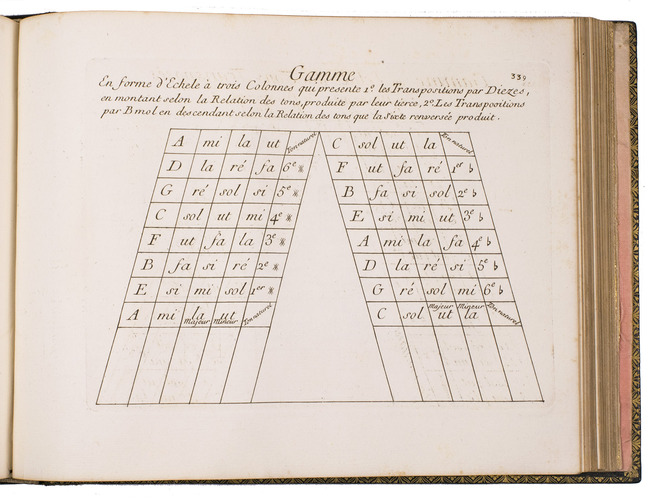 Gamme
339
En forme d'Echele à trois Colonnes qui presente 1º. les Transpositions par Diezes,
en montant selon la Relation des tons, produite par leur tierce, 2º. Les Transpositions
par B mol en descendant selon la Relation des tons que la Sixte renversée produit.
A mi la ut Ton naturel
D la ré fa 6e ※
G ré sol si 5e ※
C sol ut mi 4e ※
F ut fa la 3e ※
B fa si ré 2e ※
E si mi sol 1er ※
A mi la ut Ton naturel
majeur mineur
C sol ut la Ton naturel
F ut fa ré 1er ♭
B fa si sol 2e ♭
E si mi ut 3e ♭
A mi la fa 4e ♭
D la ré si 5e ♭
G ré sol mi 6e ♭
majeur mineur
C sol ut la Ton naturel